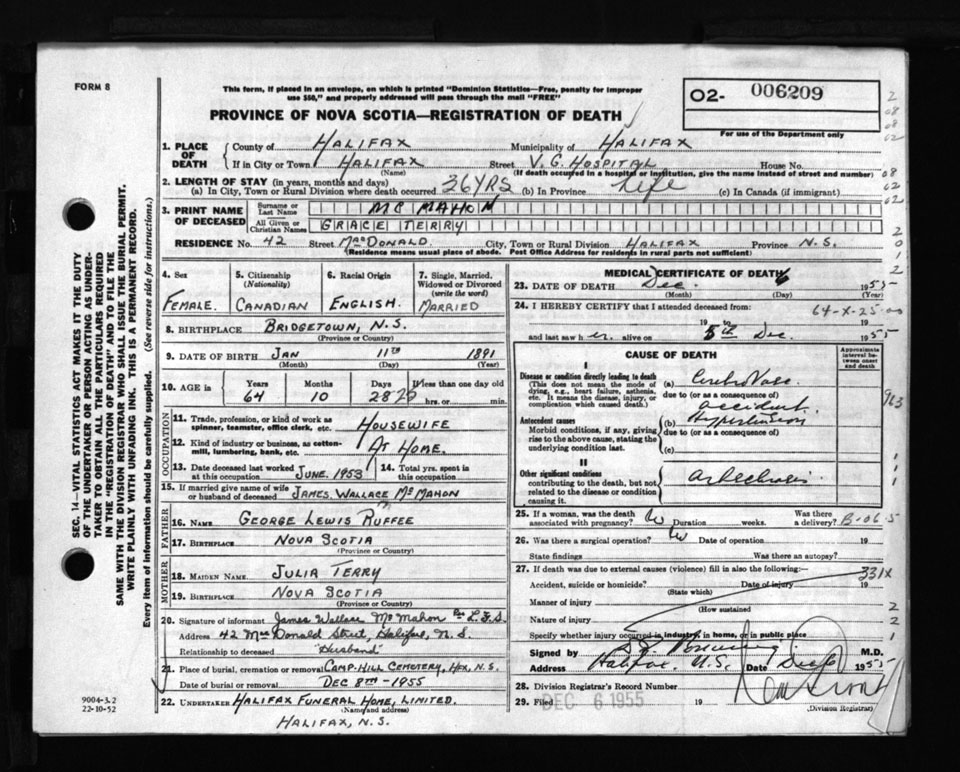 FORM 8
This form, if placed in an envelope, on which is printed "Dominion Statistics—Free, penalty for improper
use $50," and properly addressed will pass through the mail "FREE"
PROVINCE OF NOVA SCOTIA—REGISTRATION OF DEATH
O2- 006209
For use of the Department only
1. PLACE OF DEATH County of HALIFAX Municipality of HALIFAX
If in City or Town HALIFAX (Name) Street V. G. HOSPITAL House No.
(If death occurred in a hospital or institution, give the name instead of street and number)
2. LENGTH OF STAY (in years, months and days)
(a) In City, Town or Rural Division where death occurred 36 YRS (b) In Province Life (c) In Canada (if immigrant)
3. PRINT NAME OF DECEASED Surname or Last Name MC MAHON
All Given or Christian Names GRACE TERRY
RESIDENCE No. 42 Street MacDONALD. City, Town or Rural Division HALIFAX Province N.S.
(Residence means usual place of abode. Post Office Address for residents in rural parts not sufficient)
4. Sex FEMALE
5. Citizenship (Nationality) CANADIAN
6. Racial Origin ENGLISH.
7. Single, Married, Widowed or Divorced (write the word) MARRIED
8. BIRTHPLACE BRIDGETOWN, N.S.
(Province or Country)
9. DATE OF BIRTH JAN 11TH 1891
(Month) (Day) (Year)
10. AGE in Years 64 Months 10 Days 28 25 If less than one day old hrs. or min.
OCCUPATION
11. Trade, profession, or kind of work as spinner, teamster, office clerk, etc. HOUSEWIFE
12. Kind of industry or business, as cotton-mill, lumbering, bank, etc. AT HOME.
13. Date deceased last worked at this occupation JUNE. 1953 14. Total yrs. spent in this occupation
15. If married give name of wife or husband of deceased JAMES. WALLACE McMAHON
FATHER
16. NAME GEORGE LEWIS RUFFEE
17. BIRTHPLACE NOVA SCOTIA
(Province or Country)
MOTHER
18. MAIDEN NAME JULIA TERRY
19. BIRTHPLACE NOVA SCOTIA
(Province or Country)
20. Signature of informant James Wallace McMahon Per L.F.S.
Address 42 MacDonald Street, Halifax, N.S.
Relationship to deceased "Husband"
21. Place of burial, cremation or removal CAMP. HILL CEMETERY, HFX, N.S.
Date of burial or removal DEC 8TH - 1955
22. UNDERTAKER HALIFAX FUNERAL HOME, LIMITED.
(Name and address)
HALIFAX, N.S.
MEDICAL CERTIFICATE OF DEATH
23. DATE OF DEATH Dec. 6 1955
(Month) (Day) (Year)
24. I HEREBY CERTIFY that I attended deceased from: 64-X-25-00
19 to 19
and last saw her alive on 5th Dec. 1955
CAUSE OF DEATH
Approximate interval between onset and death
I
Disease or condition directly leading to death
(This does not mean the mode of dying, e.g., heart failure, asthenia, etc. It means the disease, injury, or complication which caused death.)
(a) Cerebro Vasc.
due to (or as a consequence of)
accident.
Antecedent causes
Morbid conditions, if any, giving rise to the above cause, stating the underlying condition last.
(b) Hypertension
due to (or as a consequence of)
(c)
II
Other significant conditions
contributing to the death, but not related to the disease or condition causing it.
963
25. If a woman, was the death associated with pregnancy? Duration weeks. Was there a delivery? B-06-5
26. Was there a surgical operation? Date of operation 19
State findings Was there an autopsy?
27. If death was due to external causes (violence) fill in also the following:—
331X
Accident, suicide or homicide? (State which) Date of injury 19
Manner of injury (How sustained)
Nature of injury
Specify whether injury occurred in industry, in home, or in public place
Signed by M.D.
Address Halifax. N.S. Date Dec 6 1955
28. Division Registrar's Record Number
29. Filed DEC 6 1955 19
(Division Registrar)
SEC. 14—VITAL STATISTICS ACT MAKES IT THE DUTY
OF THE UNDERTAKER OR PERSON ACTING AS UNDER-
TAKER TO OBTAIN ALL THE PARTICULARS REQUIRED
IN THE "REGISTRATION OF DEATH" AND TO FILE THE
SAME WITH THE DIVISION REGISTRAR WHO SHALL ISSUE THE BURIAL PERMIT.
WRITE PLAINLY WITH UNFADING INK. THIS IS A PERMANENT RECORD.
Every item of information should be carefully supplied. (See reverse side for instructions.)
9004-3.2
22-10-52